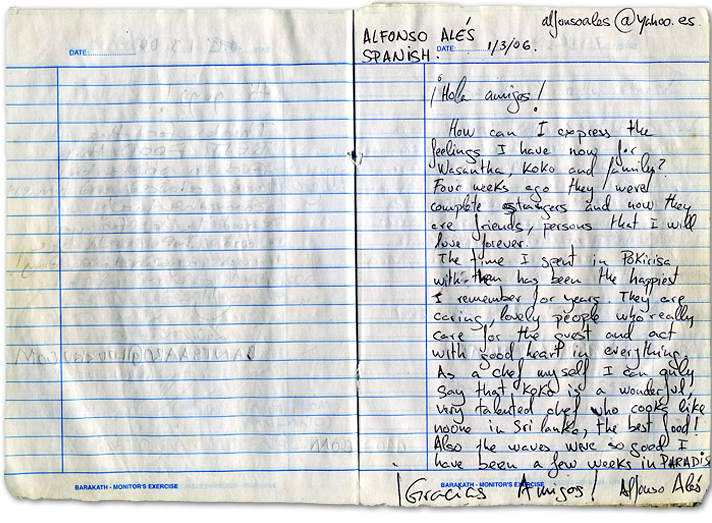 alfonsoales@yahoo.es
ALFONSO ALÉS
SPANISH.
DATE:
DATE: 1/3/06.
¡Hola amigos!
How can I express the
feelings I have now for
Wasantha, Koko and family?
Four weeks ago they were
complete stangers and now they
are friends, persons that I will
love forever.
The time I spent in Pokirisa
with them has been the happiest
I remember for years. They are
caring, lovely people who really
care for the guest and act
with good heart in everything.
As a chef myself I can only
say that Koko is a wonderful,
very talented chef who cooks like
noone in Sri lanka, the best food!
Also the waves were so good I
have been a few weeks in PARADIS
BARAKATH - MONITOR'S EXERCISE
BARAKATH - MONITOR'S EXERCISE
¡Gracias Amigos! Alfonso Alés